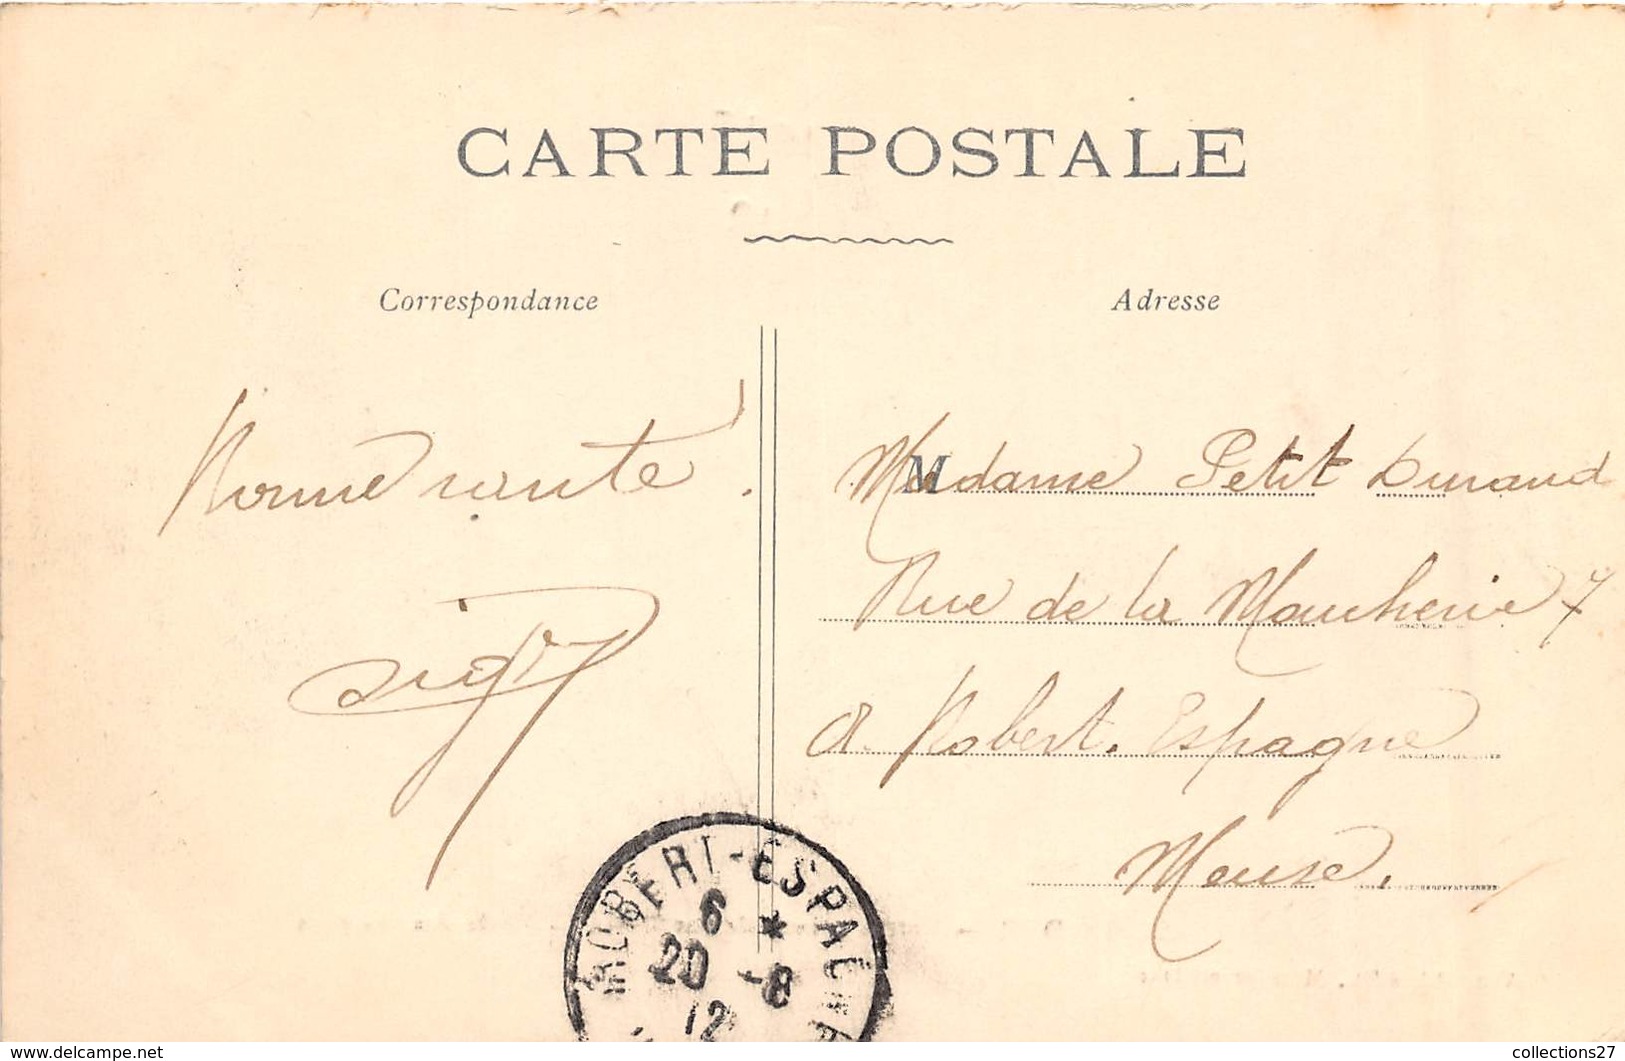 CARTE POSTALE
Correspondance
Adresse
Bonne santé.
M
Madame Petit Durand
Rue de la Maucherie 7
à Robert. Espagne
Meuse.
ROBERT-ESPAGNE
6
20 -8
12
www.delcampe.net
collections27